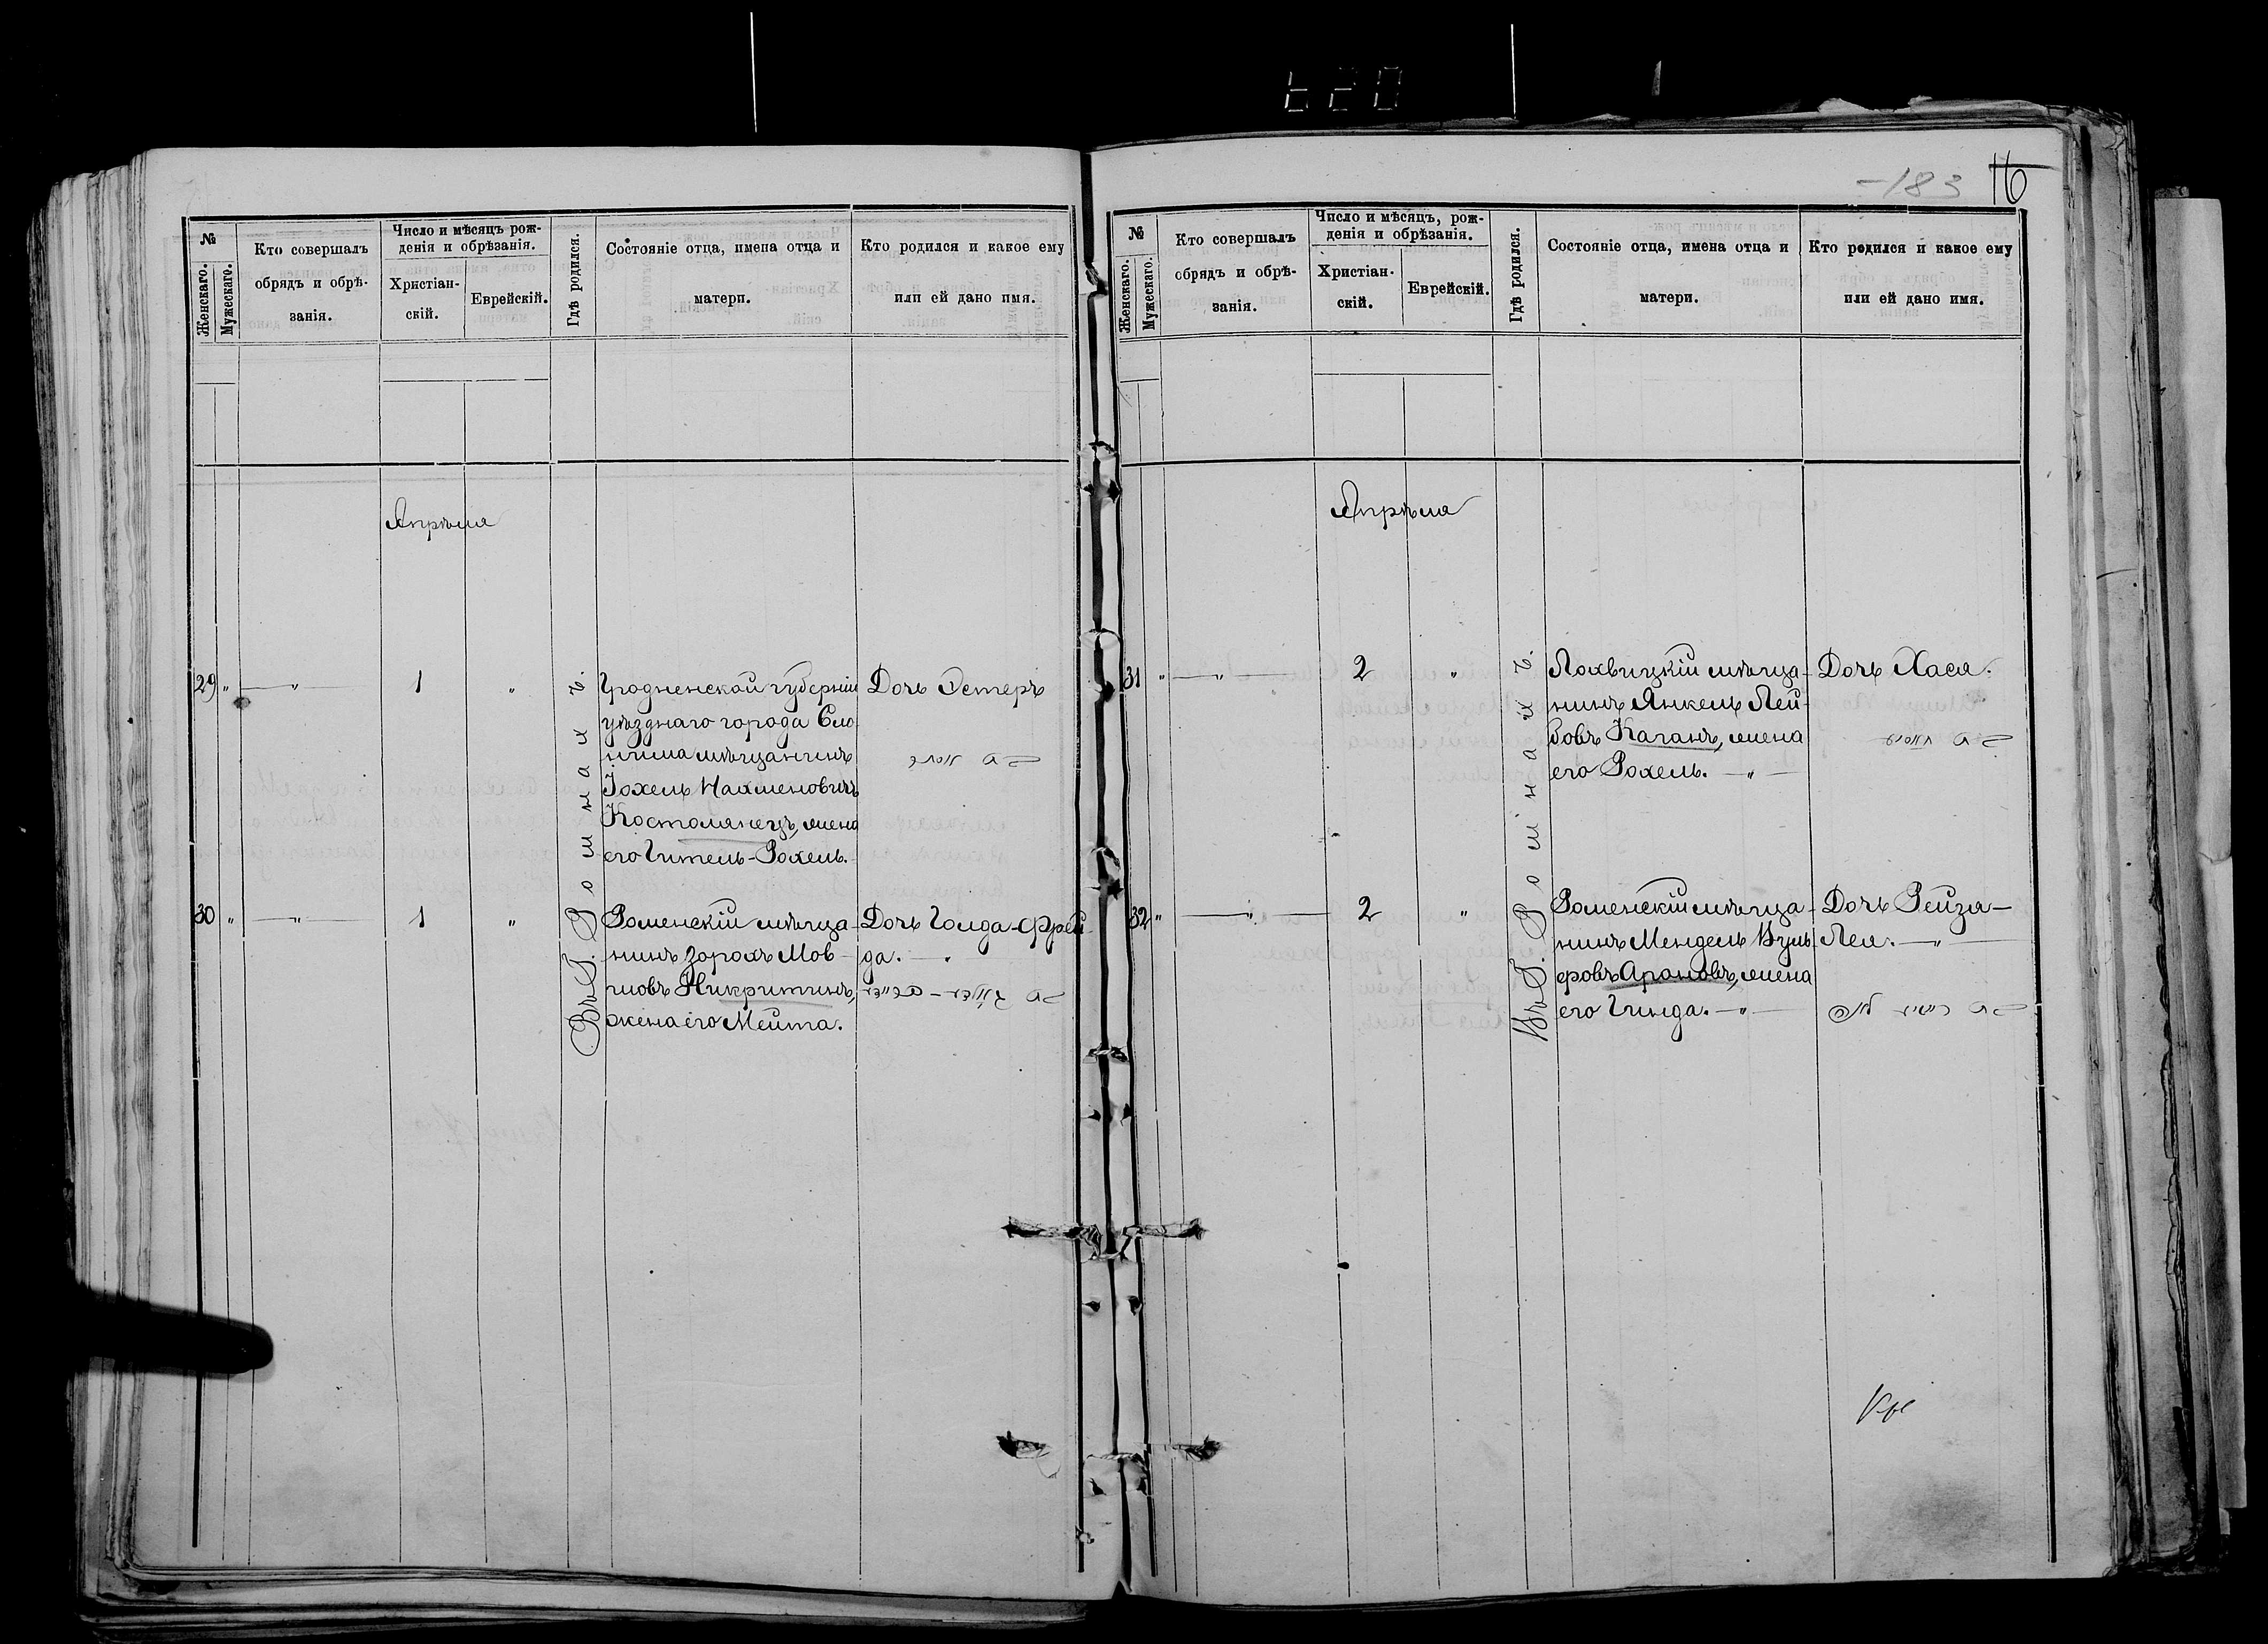 620
-183 16
№
Женскаго.
Мужескаго.
Кто совершалъ
обрядъ и обрѣ-
занія.
Число и мѣсяцъ рож-
денія и обрѣзанія.
Христіан-
скій.
Еврейскій.
Гдѣ родился.
Состояніе отца, имена отца и
матери.
Кто родился и какое ему
или ей дано имя.
Апрѣля
29 " —"— 1 "
Въ г. Ромнахъ.
Гродненской губерніи
уѣзднаго города Сло
нима мѣщанинъ
Іохель Нахменовичъ
Костолянецъ, жена
его Гитель-Рохель.
Дочь Эстеръ
30 " —"— 1 "
Роменскій мѣща-
нинъ Зорохъ Мов-
шовъ Никритинъ,
жена его Мейта.
Дочь Голда-Фрей-
да. — "
№
Женскаго.
Мужескаго.
Кто совершалъ
обрядъ и обрѣ-
занія.
Число и мѣсяцъ, рож-
денія и обрѣзанія.
Христіан-
скій.
Еврейскій.
Гдѣ родился.
Состояніе отца, имена отца и
матери.
Кто родился и какое ему
или ей дано имя.
Апрѣля
31 " —"— 2 "
Въ г. Ромнахъ.
Лохвицкій мѣща-
нинъ Янкель Лей-
бовъ Каганъ, жена
его Рохель. —"—
Дочь Хася.
32 " —"— 2 "
Роменскій мѣща-
нинъ Мендель Вуль
фовъ Ароновъ, жена
его Гинда. —"—
Дочь Рейза—
Лея. —"—